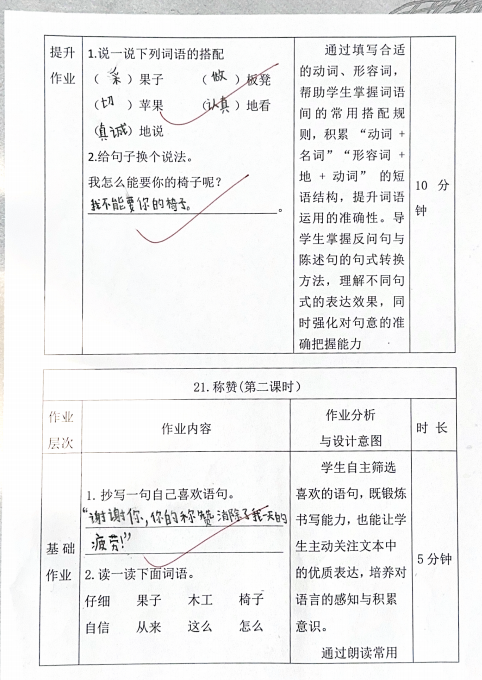 提升
作业
1.说一说下列词语的搭配
（采）果子 （做）板凳
（切）苹果 （认真）地看
（真诚）地说
2.给句子换个说法。
我怎么能要你的椅子呢？
我不能要你的椅子。。
通过填写合适
的动词、形容词，
帮助学生掌握词语
间的常用搭配规
则，积累“动词 +
名词”“形容词 +
地 + 动词” 的短
语结构，提升词语
运用的准确性。导
学生掌握反问句与
陈述句的句式转换
方法，理解不同句
式的表达效果，同
时强化对句意的准
确把握能力
10 分
钟
21.称赞(第二课时）
作业
层次
作业内容
作业分析
与设计意图
时 长
基础
作业
1. 抄写一句自己喜欢语句。
“谢谢你，你的称赞消除了我一天的
疲劳!”
2.读一读下面词语。
仔细 果子 木工 椅子
自信 从来 这么 怎么
学生自主筛选
喜欢的语句，既锻炼
书写能力，也能让学
生主动关注文本中
的优质表达，培养对
语言的感知与积累
意识。
通过朗读常用
5分钟